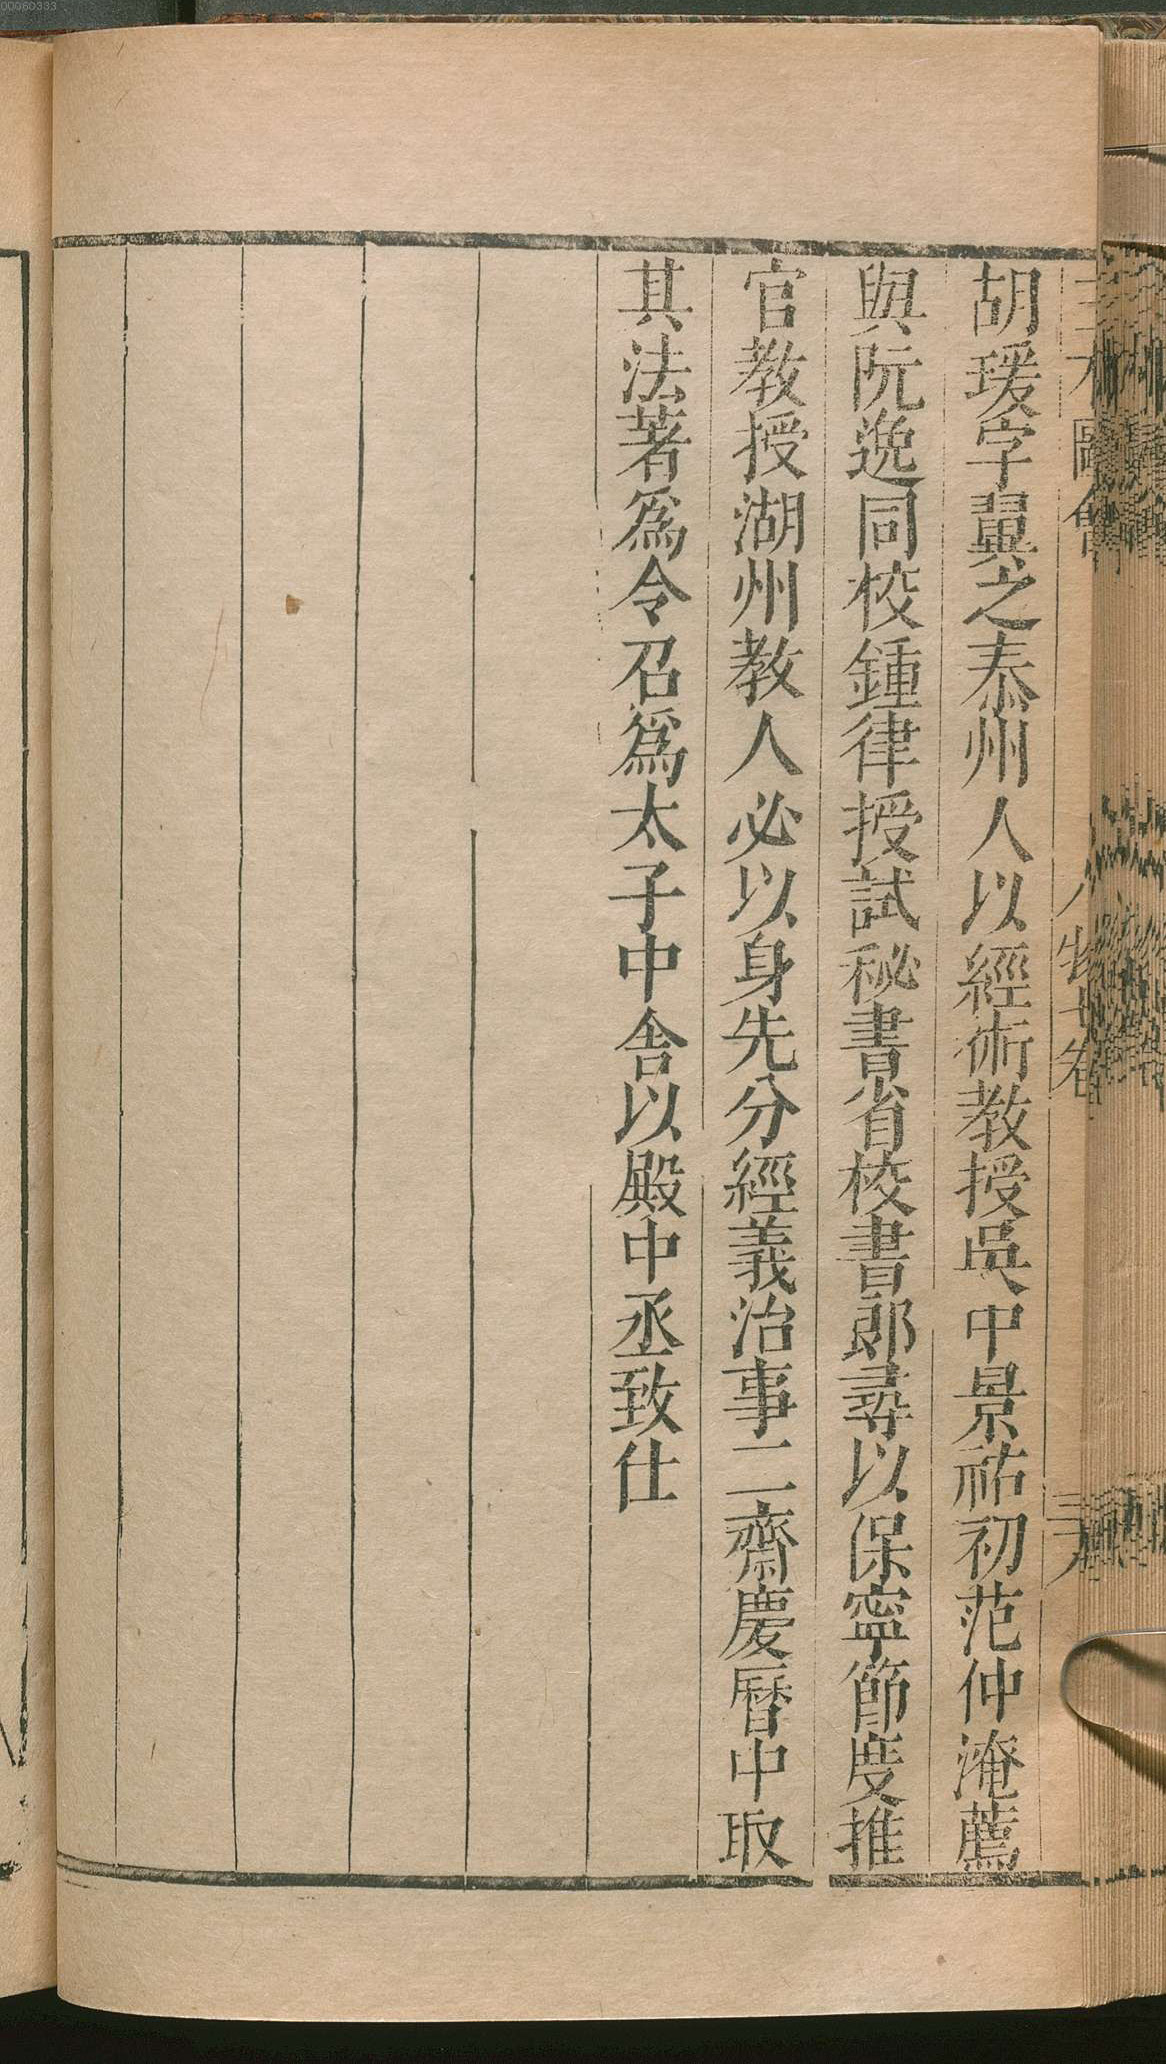 三才圖會 人物七卷
胡瑗字翼之泰州人以經術教授吳中景祐初范仲淹薦
與阮逸同校鍾律授試秘書省校書郎尋以保寧節度推
官教授湖州教人必以身先分經義治事二齋慶曆中取
其法著爲令召爲太子中舍以殿中丞致仕
00060333